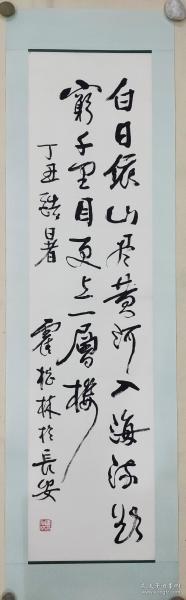 白日依山尽黄河入海流欲
窮千里目更上一層楼
丁丑酷暑
霍松林於長安